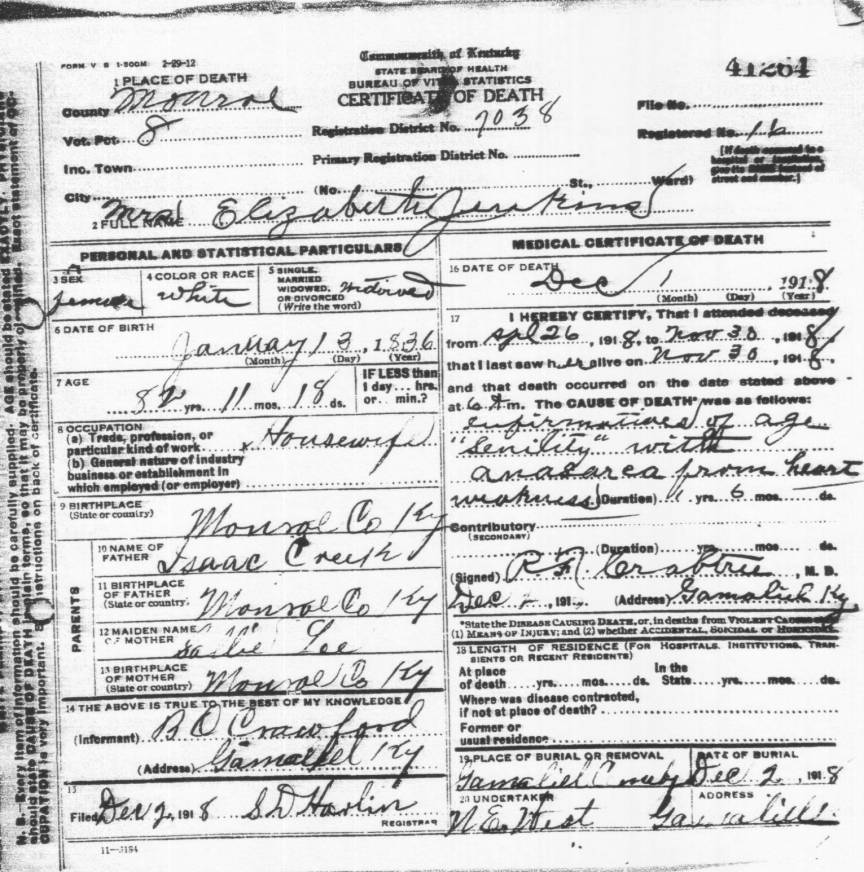 FORM V S 1-500M 2-29-12
Commonwealth of Kentucky
STATE BOARD OF HEALTH
BUREAU OF VITAL STATISTICS
CERTIFICATE OF DEATH
41264
1 PLACE OF DEATH
County Monroe
Vot. Pct. 8
Inc. Town
City
Registration District No. 7038
Primary Registration District No.
(No. St., Ward)
File No.
Registered No. 16
[If death occurred in a
hospital or institution,
give its NAME instead of
street and number.]
2 FULL NAME Mrs Elizabeth Jenkins
PERSONAL AND STATISTICAL PARTICULARS
3 SEX female
4 COLOR OR RACE white
5 SINGLE, MARRIED WIDOWED, OR DIVORCED (Write the word) Widowed
6 DATE OF BIRTH
January 13, 1836
(Month) (Day) (Year)
7 AGE
82 yrs. 11 mos. 18 ds.
IF LESS than
1 day... hrs.
or... min.?
8 OCCUPATION
(a) Trade, profession, or
particular kind of work Housewife
(b) General nature of industry
business or establishment in
which employed (or employer)
9 BIRTHPLACE
(State or country) Monroe Co Ky
PARENTS
10 NAME OF
FATHER Isaac Creek
11 BIRTHPLACE
OF FATHER
(State or country) Monroe Co Ky
12 MAIDEN NAME
OF MOTHER Sallie Lee
13 BIRTHPLACE
OF MOTHER
(State or country) Monroe Co Ky
14 THE ABOVE IS TRUE TO THE BEST OF MY KNOWLEDGE
(Informant) B O Crawford
(Address) Gamaliel Ky
15
Filed Dec 2, 1918 S D Harlin
REGISTRAR
11-3184
MEDICAL CERTIFICATE OF DEATH
16 DATE OF DEATH
Dec 1 1918
(Month) (Day) (Year)
17 I HEREBY CERTIFY, That I attended deceased
from Spt 26, 1918, to Nov 30, 1918,
that I last saw her alive on Nov 30, 1918,
and that death occurred on the date stated above
at 6 A m. The CAUSE OF DEATH* was as follows:
infirmatives of age
"Senility" with
anasarca from heart
weakness (Duration) 1 yrs. 6 mos. ds.
Contributory
(SECONDARY)
(Duration) yrs. mos. ds.
(Signed) Crabtree, M. D.
Dec 2, 191 (Address) Gamaliel Ky
*State the DISEASE CAUSING DEATH, or, in deaths from VIOLENT CAUSES
(1) MEANS OF INJURY; and (2) whether ACCIDENTAL, SUICIDAL or HOMICIDAL.
18 LENGTH OF RESIDENCE (FOR HOSPITALS, INSTITUTIONS, TRAN-
SIENTS OR RECENT RESIDENTS)
At place
of death yrs. mos. ds.
In the
State yrs. mos. ds.
Where was disease contracted,
if not at place of death?
Former or
usual residence
19 PLACE OF BURIAL OR REMOVAL
Gamaliel
DATE OF BURIAL
Dec 2, 1918
20 UNDERTAKER
N. E. West
ADDRESS
Gamaliel
N. B. Every item of information should be carefully supplied. AGE should be stated EXACTLY.
should state CAUSE OF DEATH in plain terms, so that it may be properly classified. Exact statement of OC-
CUPATION is very important. instructions on back of certificate.